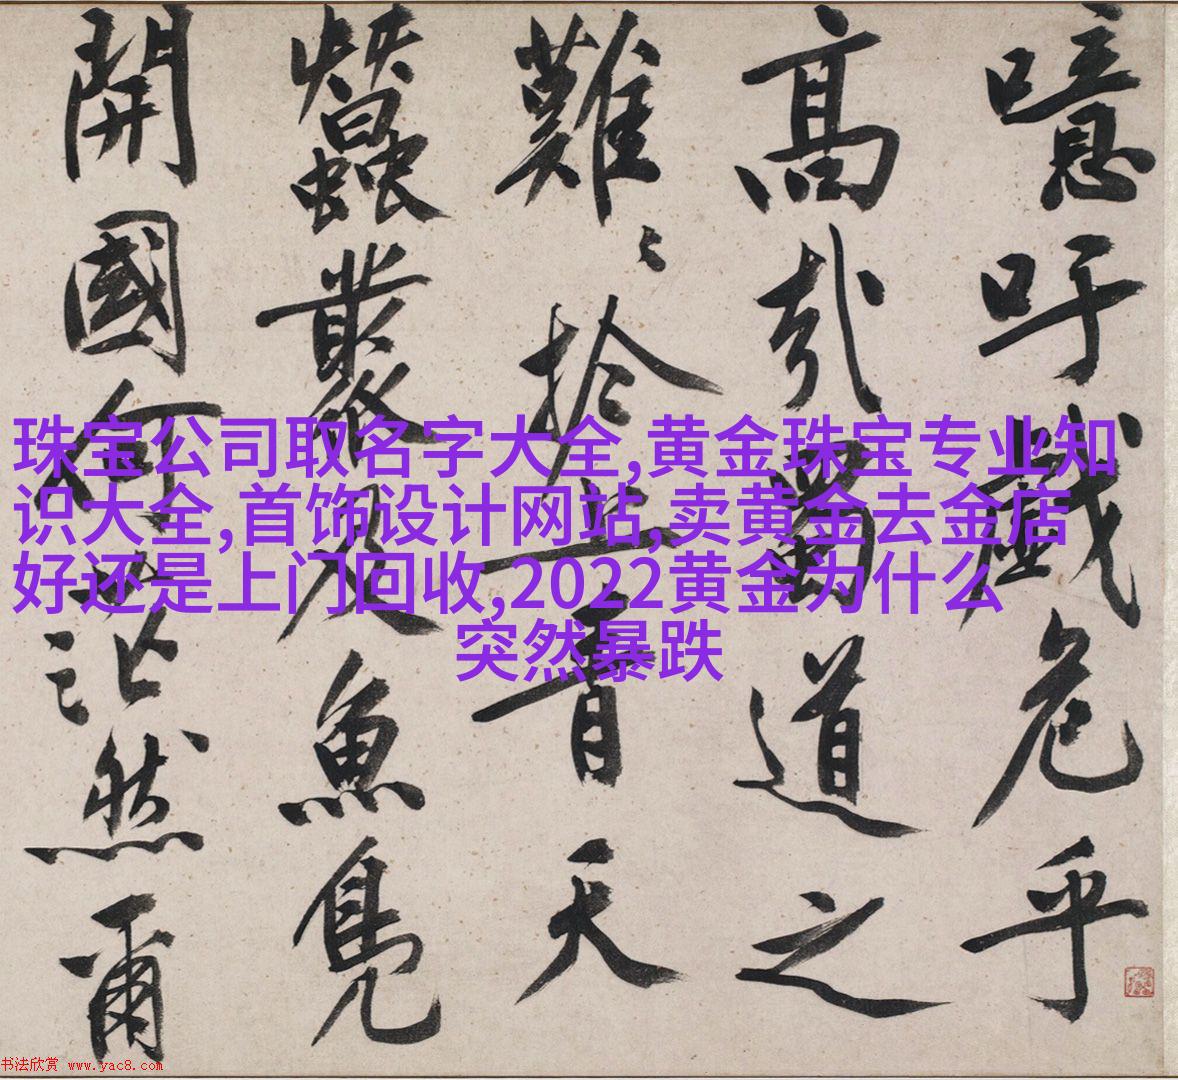 噫吁戲危乎
高哉蜀道之
難〻扵上青天
蠶叢及魚鳧
開國何茫然爾
珠宝公司取名字大全,黄金珠宝专业知
识大全,首饰设计网站,卖黄金去金店
好还是上门回收,2022黄金为什么
突然暴跌
书法欣赏 www.yac8.com